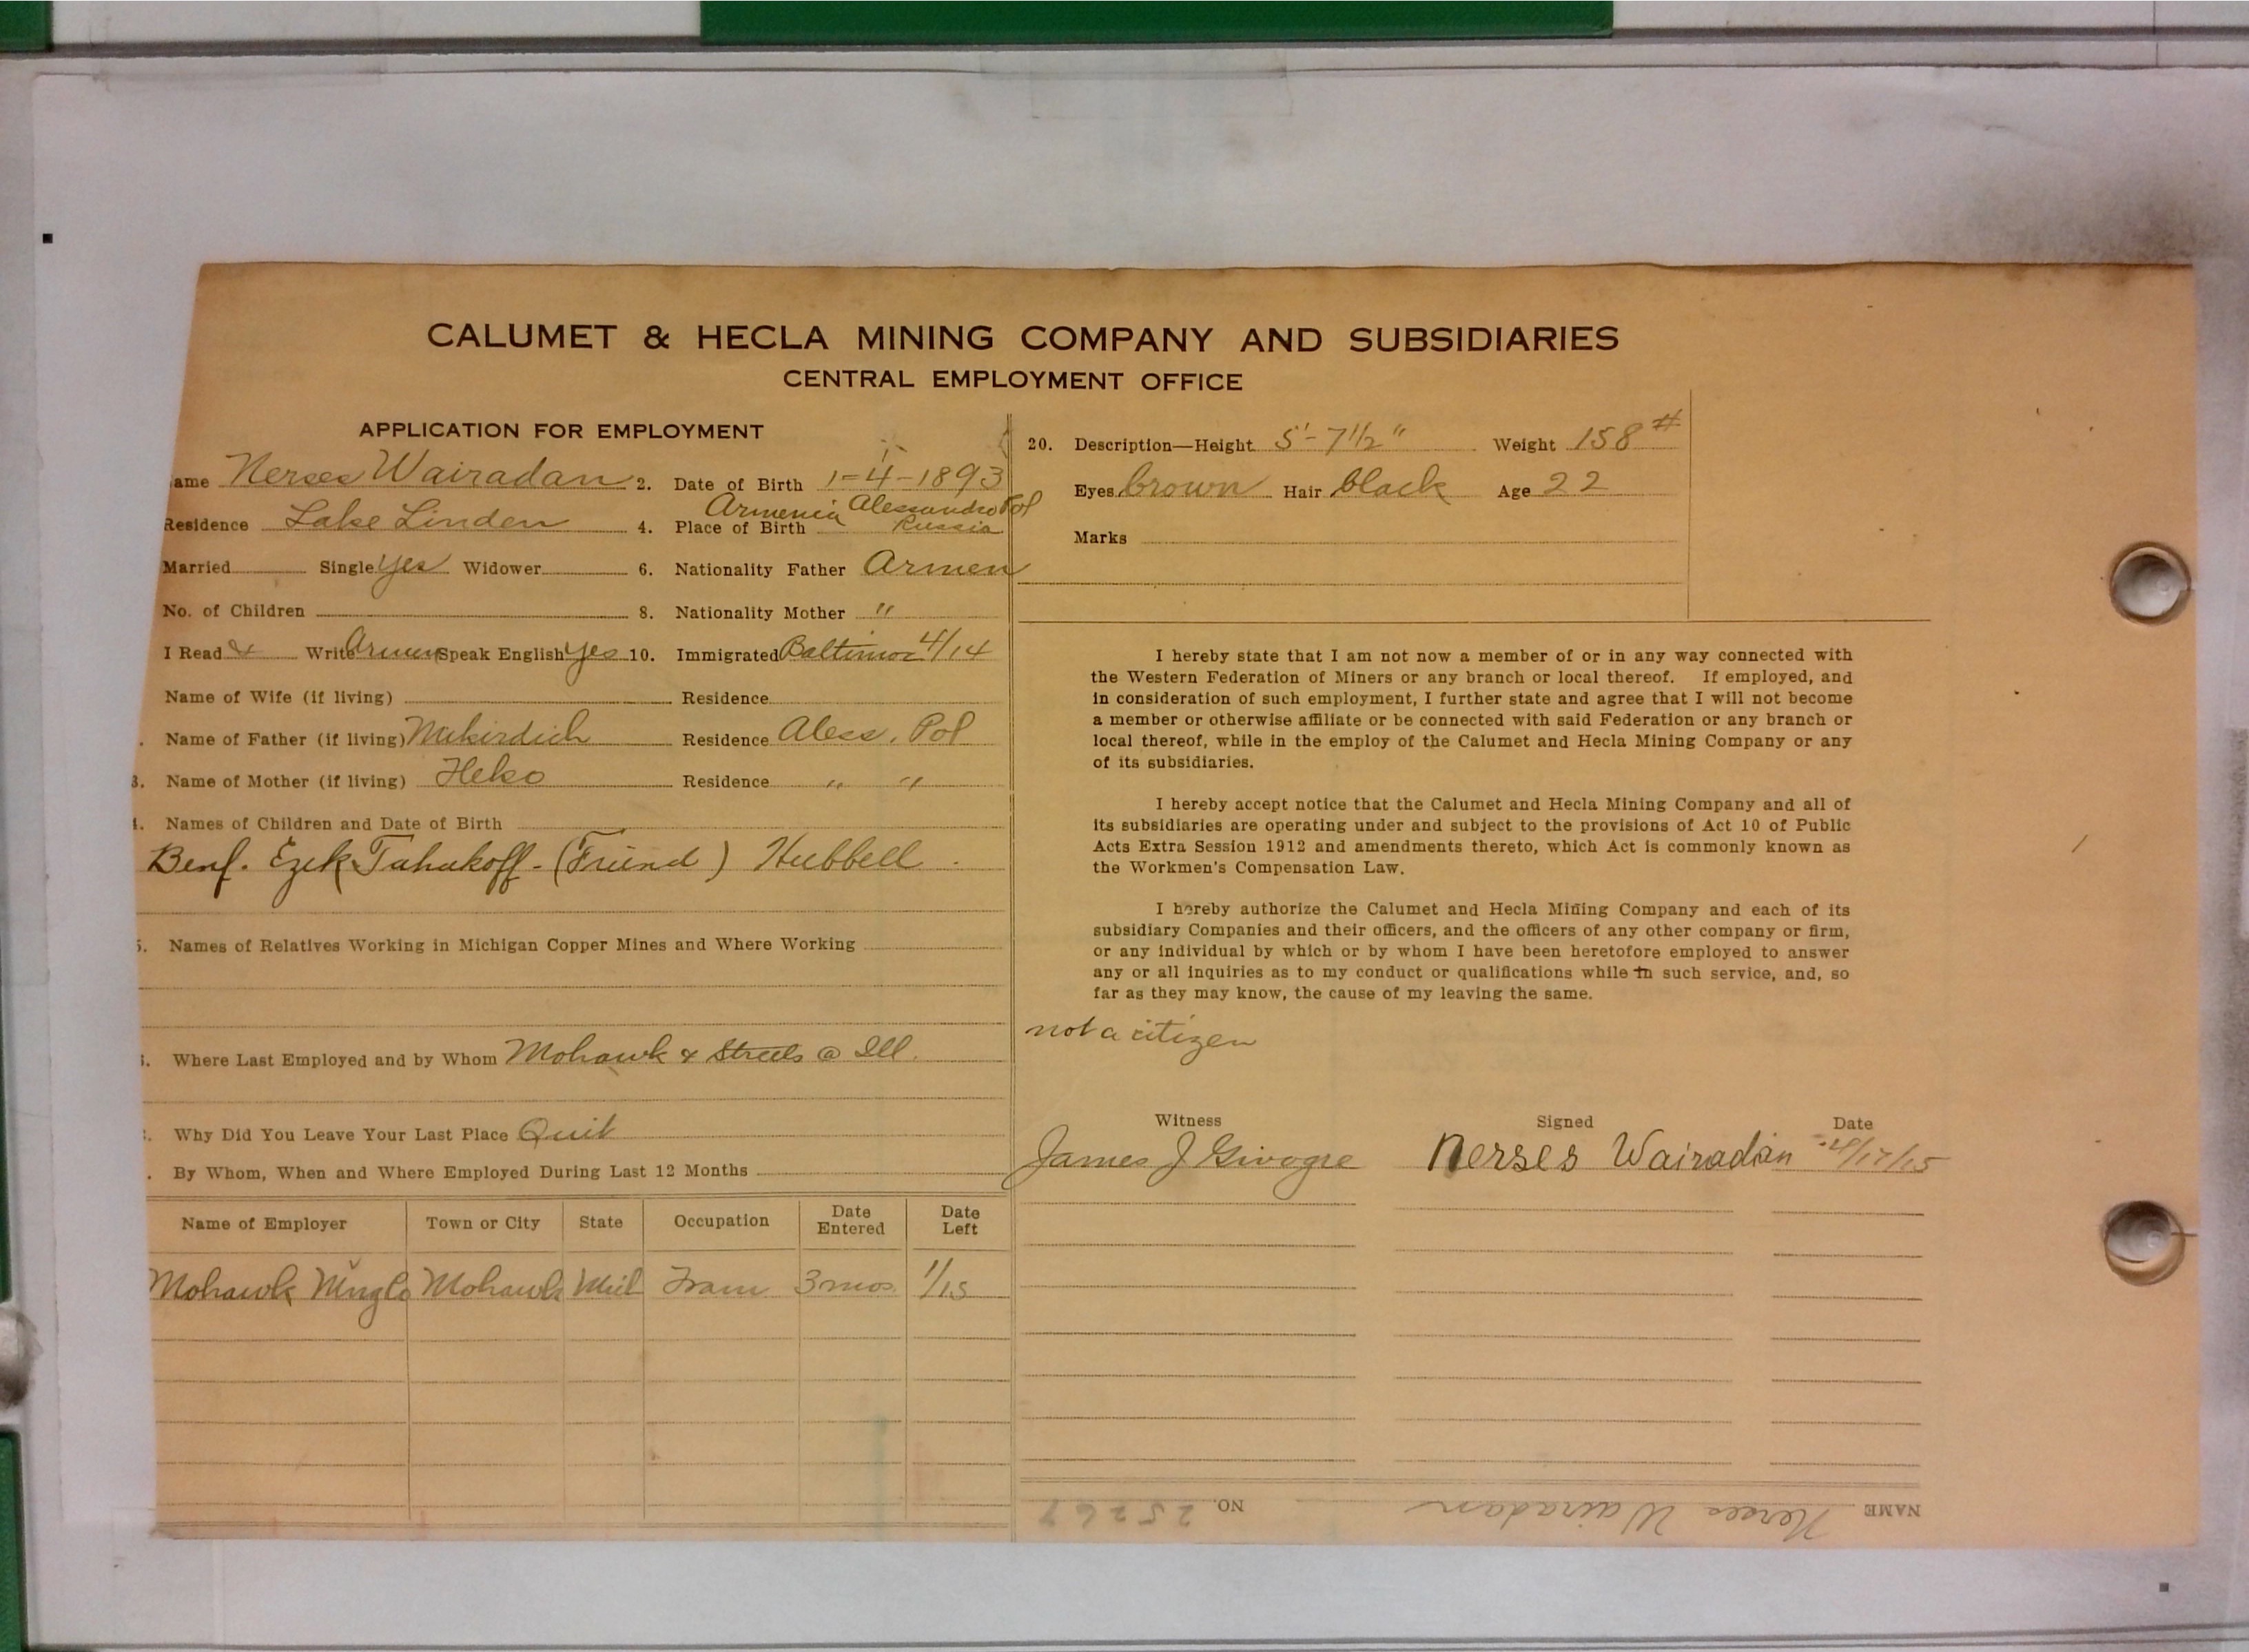 CALUMET & HECLA MINING COMPANY AND SUBSIDIARIES
CENTRAL EMPLOYMENT OFFICE
APPLICATION FOR EMPLOYMENT
ame Nerses Wairadan 2. Date of Birth 1-4-1893
Residence Lake Linden 4. Place of Birth Armenia Alessandro Pol Russia
Married Single yes Widower 6. Nationality Father Armen
No. of Children 8. Nationality Mother "
I Read & Write Armen Speak English yes 10. Immigrated Baltimor 4/14
Name of Wife (if living) Residence
. Name of Father (if living) Mikirdich Residence Aless. Pol
3. Name of Mother (if living) Heko Residence " "
4. Names of Children and Date of Birth
Benf. Ezek Tahukoff - (Friend) Hubbell
5. Names of Relatives Working in Michigan Copper Mines and Where Working
Where Last Employed and by Whom Mohawk & Streets @ Ill.
Why Did You Leave Your Last Place Quit
. By Whom, When and Where Employed During Last 12 Months
Name of Employer Town or City State Occupation Date Entered Date Left
Mohawk Mng Co Mohawk Mich Tram 3 mos. 1/15
20. Description—Height 5'-7 1/2" Weight 158 #
Eyes brown Hair black Age 22
Marks
I hereby state that I am not now a member of or in any way connected with
the Western Federation of Miners or any branch or local thereof. If employed, and
in consideration of such employment, I further state and agree that I will not become
a member or otherwise affiliate or be connected with said Federation or any branch or
local thereof, while in the employ of the Calumet and Hecla Mining Company or any
of its subsidiaries.
I hereby accept notice that the Calumet and Hecla Mining Company and all of
its subsidiaries are operating under and subject to the provisions of Act 10 of Public
Acts Extra Session 1912 and amendments thereto, which Act is commonly known as
the Workmen's Compensation Law.
I hereby authorize the Calumet and Hecla Mining Company and each of its
subsidiary Companies and their officers, and the officers of any other company or firm,
or any individual by which or by whom I have been heretofore employed to answer
any or all inquiries as to my conduct or qualifications while in such service, and, so
far as they may know, the cause of my leaving the same.
not a citizen
Witness Signed Date
James J Givogre Nerses Wairadan /17/15
NAME Nerses Wairadan NO. 25267